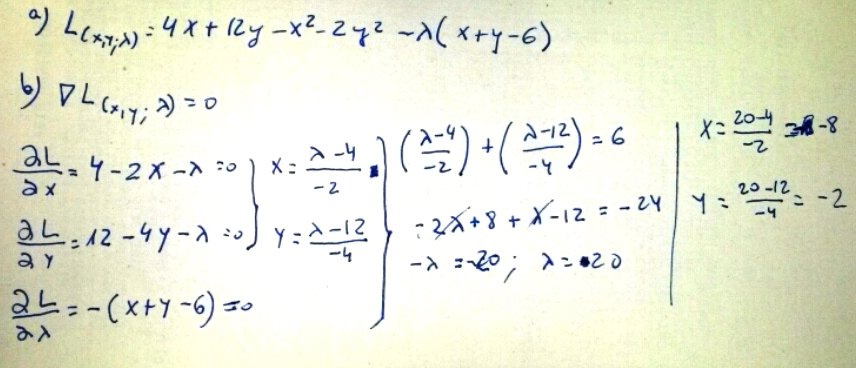 a) L(x,y;λ) = 4x + 12y - x² - 2y² - λ(x+y-6)
b) ∇L(x,y; λ) = 0
∂L/∂x = 4 - 2x - λ = 0
∂L/∂y = 12 - 4y - λ = 0
∂L/∂λ = -(x+y-6) = 0
x = λ-4/-2
y = λ-12/-4
(λ-4/-2) + (λ-12/-4) = 6
-2λ + 8 + λ - 12 = -24
-λ = -20; λ = 20
x = 20-4/-2 = -8
y = 20-12/-4 = -2